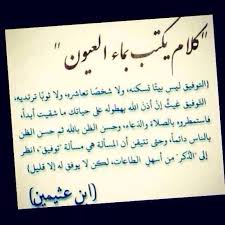 "كلام يكتب بماء العيون"
(التوفيق ليس بيتا تسكنه، ولا شخصا تعاشره، ولا ثوبا ترتديه،
التوفيق غيث إن أذن الله بهطوله على حياتك ما شقيت أبدا،
فاستمطروه بالصلاة والدعاء، وحسن الظن بالله ثم حسن الظن
بالناس دائما، وحتى تتيقن أن المسألة هي مسألة "توفيق"، انظر
إلى الذكر: من أسهل الطاعات، لكن لا يوفق له إلا قليل)
(ابن عثيمين)